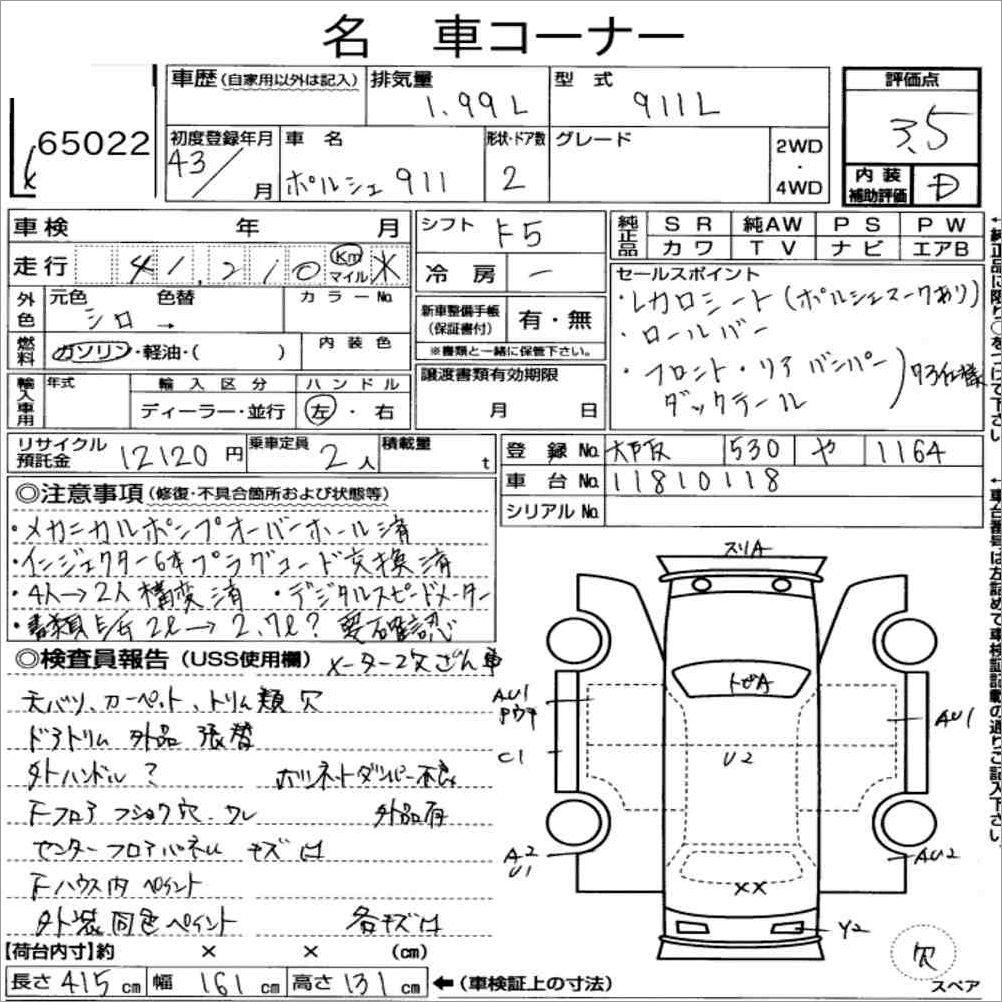 名 車コーナー
65022
車歴 (自家用以外は記入) 排気量 1.99L 型式 911L 評価点 3.5
初度登録年月 43/ 月 車名 ポルシェ 911 形状・ドア数 2 グレード 2WD・4WD 内装補助評価 D
車検 年 月 シフト F5 純正品 SR 純AW PS PW
カワ TV ナビ エアB
走行 41,210 Km マイル ※ 冷房 ー
セールスポイント
・レカロシート (ポルシェマークあり)
・ロールバー
・フロント・リアバンパー
ダックテール ) 73仕様
外色 元色 シロ → 色替 カラーNo.
新車整備手帳(保証書付) 有・無
※書類と一緒に保管下さい。
燃料 ガソリン・軽油・( ) 内装色
輸入車用 年式 輸入区分 ディーラー・並行 ハンドル 左・右
譲渡書類有効期限 月 日
リサイクル預託金 12120円 乗車定員 2人 積載量 t
登録No. 大阪 530 や 1164
車台No. 11810118
シリアルNo.
◎注意事項 (修復・不具合箇所および状態等)
・メカニカルポンプオーバーホール済
・インジェクター6本プラグコード交換済
・4人→2人構変済 ・デジタルスピードメーター
・書類上 2ℓ→2.7ℓ? 要確認
◎検査員報告 (USS使用欄) メーター改ざん車
天バリ、カーペット、トリム類 欠
ドアトリム 外品 張替
外ハンドル ? ボンネットダンパー不良
Fフロア フショク穴、ワレ 外品有
センターフロアパネル キズ凹
Fハウス内 ペイント
外装同色ペイント 各キズ凹
【荷台内寸】約 × × (cm)
長さ 415 cm 幅 161 cm 高さ 131 cm ←(車検証上の寸法)
スリA
トビA
AU1
C1
U2
AU1
A2
U1
AU2
××
Y2
欠
スペア
←純正品に限り○をつけて下さい。
←車台番号は左詰めで車検証記載の通りご記入下さい。